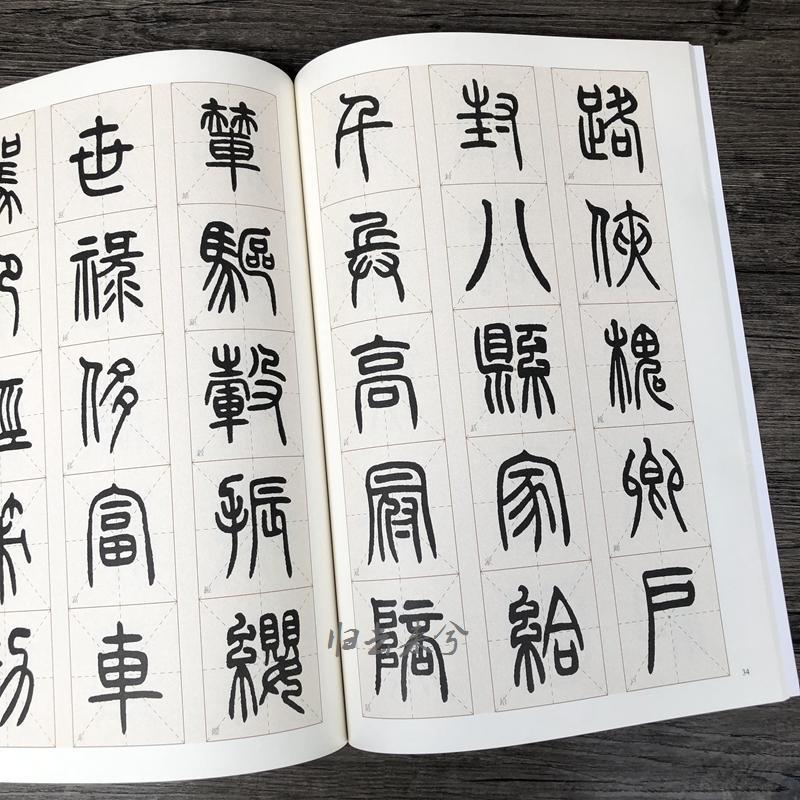 路俠槐卿戶
封八縣家給
千兵高冠陪
輦驅轂振纓
世祿侈富車
归去来兮
34